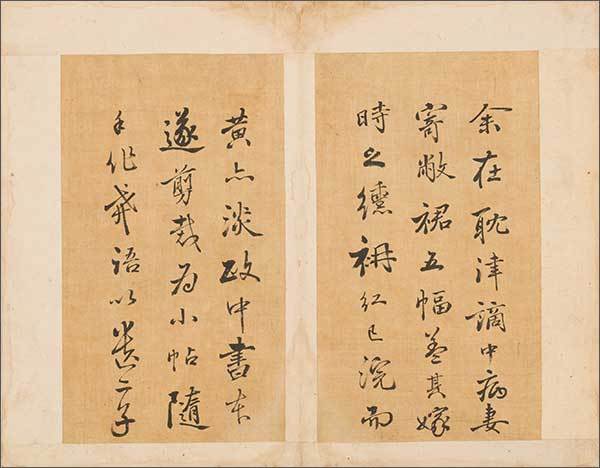 余在耽津謫中病妻
寄敝裙五幅蓋其嫁
時之纁袡紅已浣而
黃亦淡政中書本
遂剪裁為小帖隨
手作戒語以遺二子